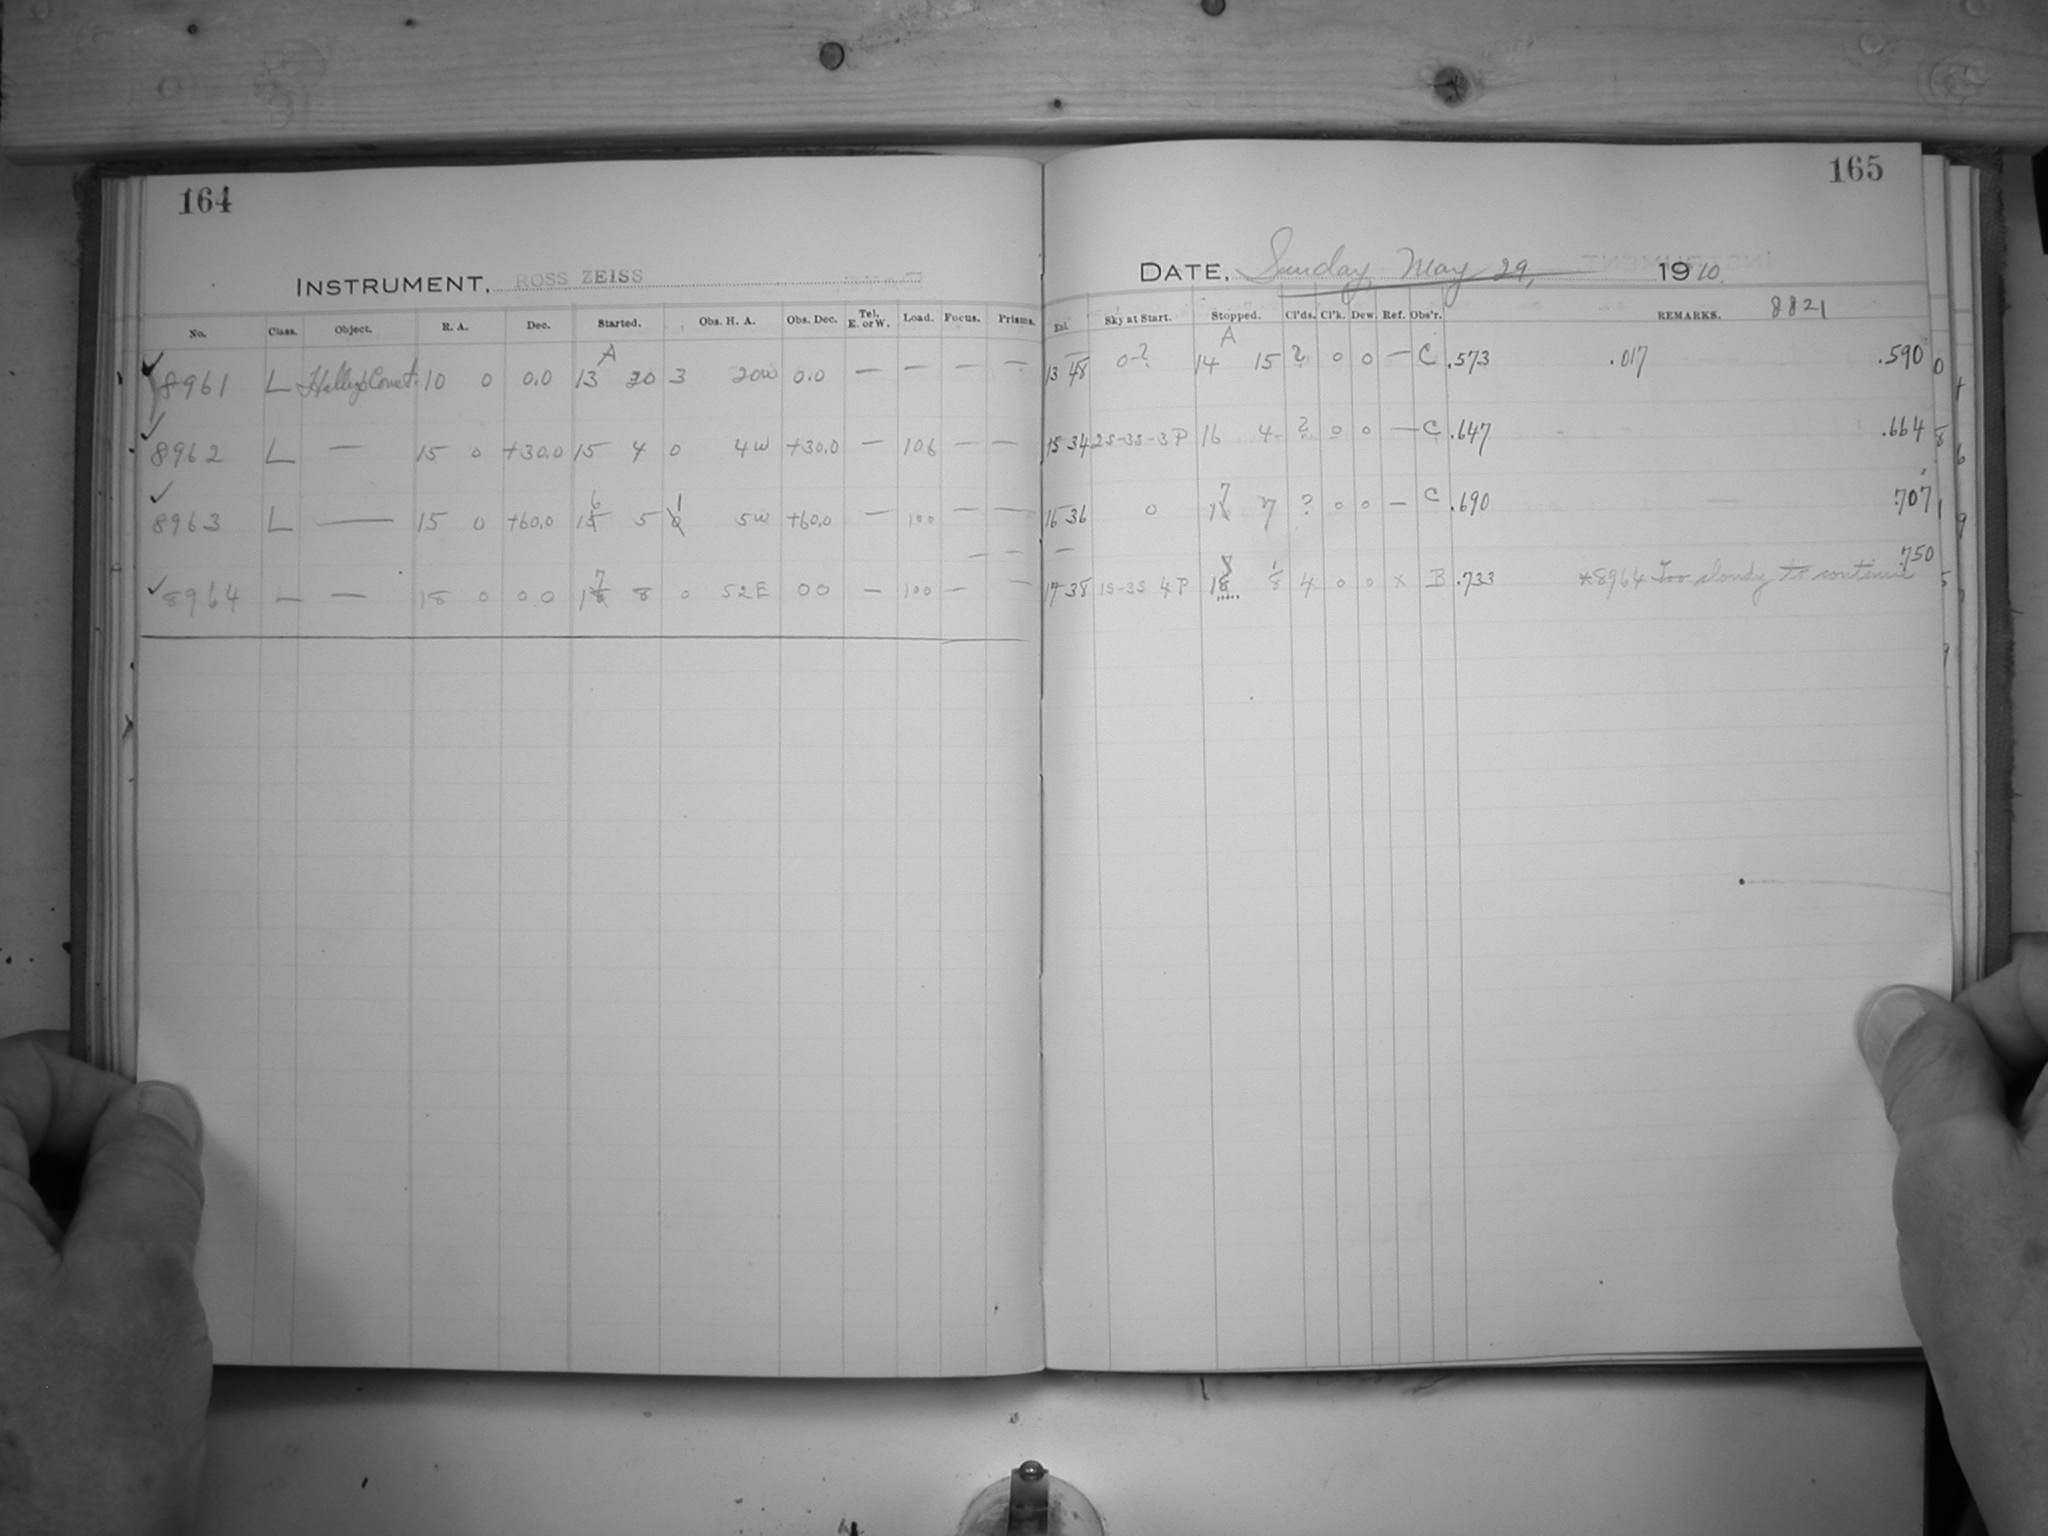 164
INSTRUMENT, ROSS ZEISS
No. Class. Object. R. A. Dec. Started. Obs. H. A. Obs. Dec. Tel. E. or W. Load. Focus. Prisms.
A
8961 L Halley's Comet 10 0 0.0 13 20 3 20W 0.0 — — — —
8962 L — 15 0 +30.0 15 4 0 4W +30.0 — 106 — —
8963 L — 15 0 +60.0 16 5 1 5W +60.0 — 100 — —
8964 L — 18 0 0 0 17 8 0 52E 0 0 — 100 — —
165
DATE, Sunday, May 29, 1910.
Ext. Sky at Start. Stopped. Cl'ds. Cl'k. Dew. Ref. Obs'r. REMARKS. 8821
A
13 48 0-? 14 15 ? 0 0 — C .573 .017 .590
15 34 2S-3S-3P 16 4 ? 0 0 — C .647 .664
16 36 0 17 7 ? 0 0 — C .690 — .707
.750
17 38 1S-3S 4P 18 8 4 0 0 X B .733 *8964 Too cloudy to continue